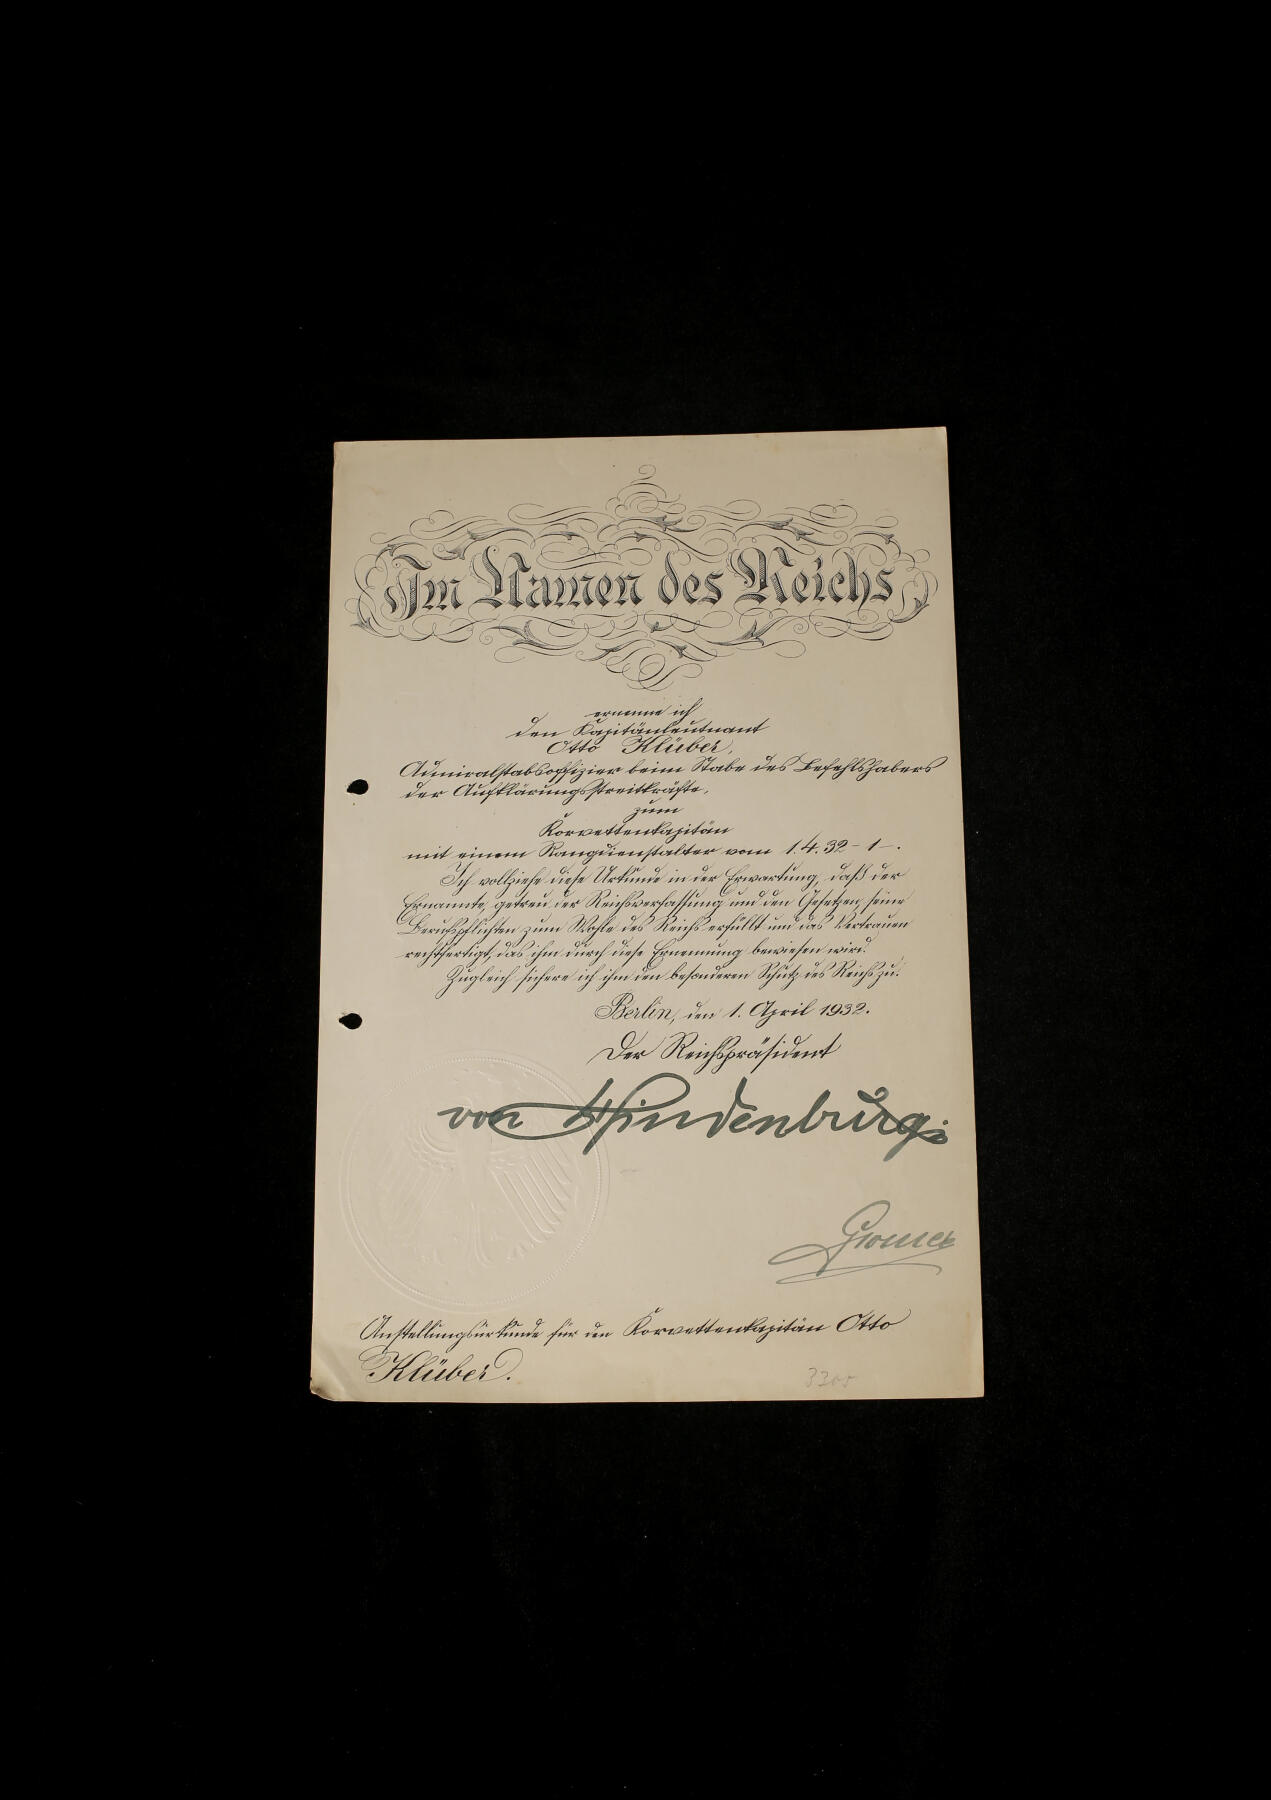 Im Namen des Reichs
ernenne ich
den Kapitänleutnant
Otto Klüber,
Admiralstabsoffizier beim Stabe des Befehlshabers
der Aufklärungsstreitkräfte,
zum
Korvettenkapitän
mit einem Rangdienstalter vom 1.4.32 - 1 - .
Ich vollziehe diese Urkunde in der Erwartung, daß der
Ernannte, getreu der Reichsverfassung und den Gesetzen, seine
Berufspflichten zum Wohle des Reichs erfüllt und das Vertrauen
rechtfertigt, das ihm durch diese Ernennung bewiesen wird.
Zugleich sichere ich ihm den besonderen Schutz des Reichs zu.
Berlin, den 1. April 1932.
Der Reichspräsident
von Hindenburg
Groener
Anstellungsurkunde für den Korvettenkapitän Otto
Klüber.